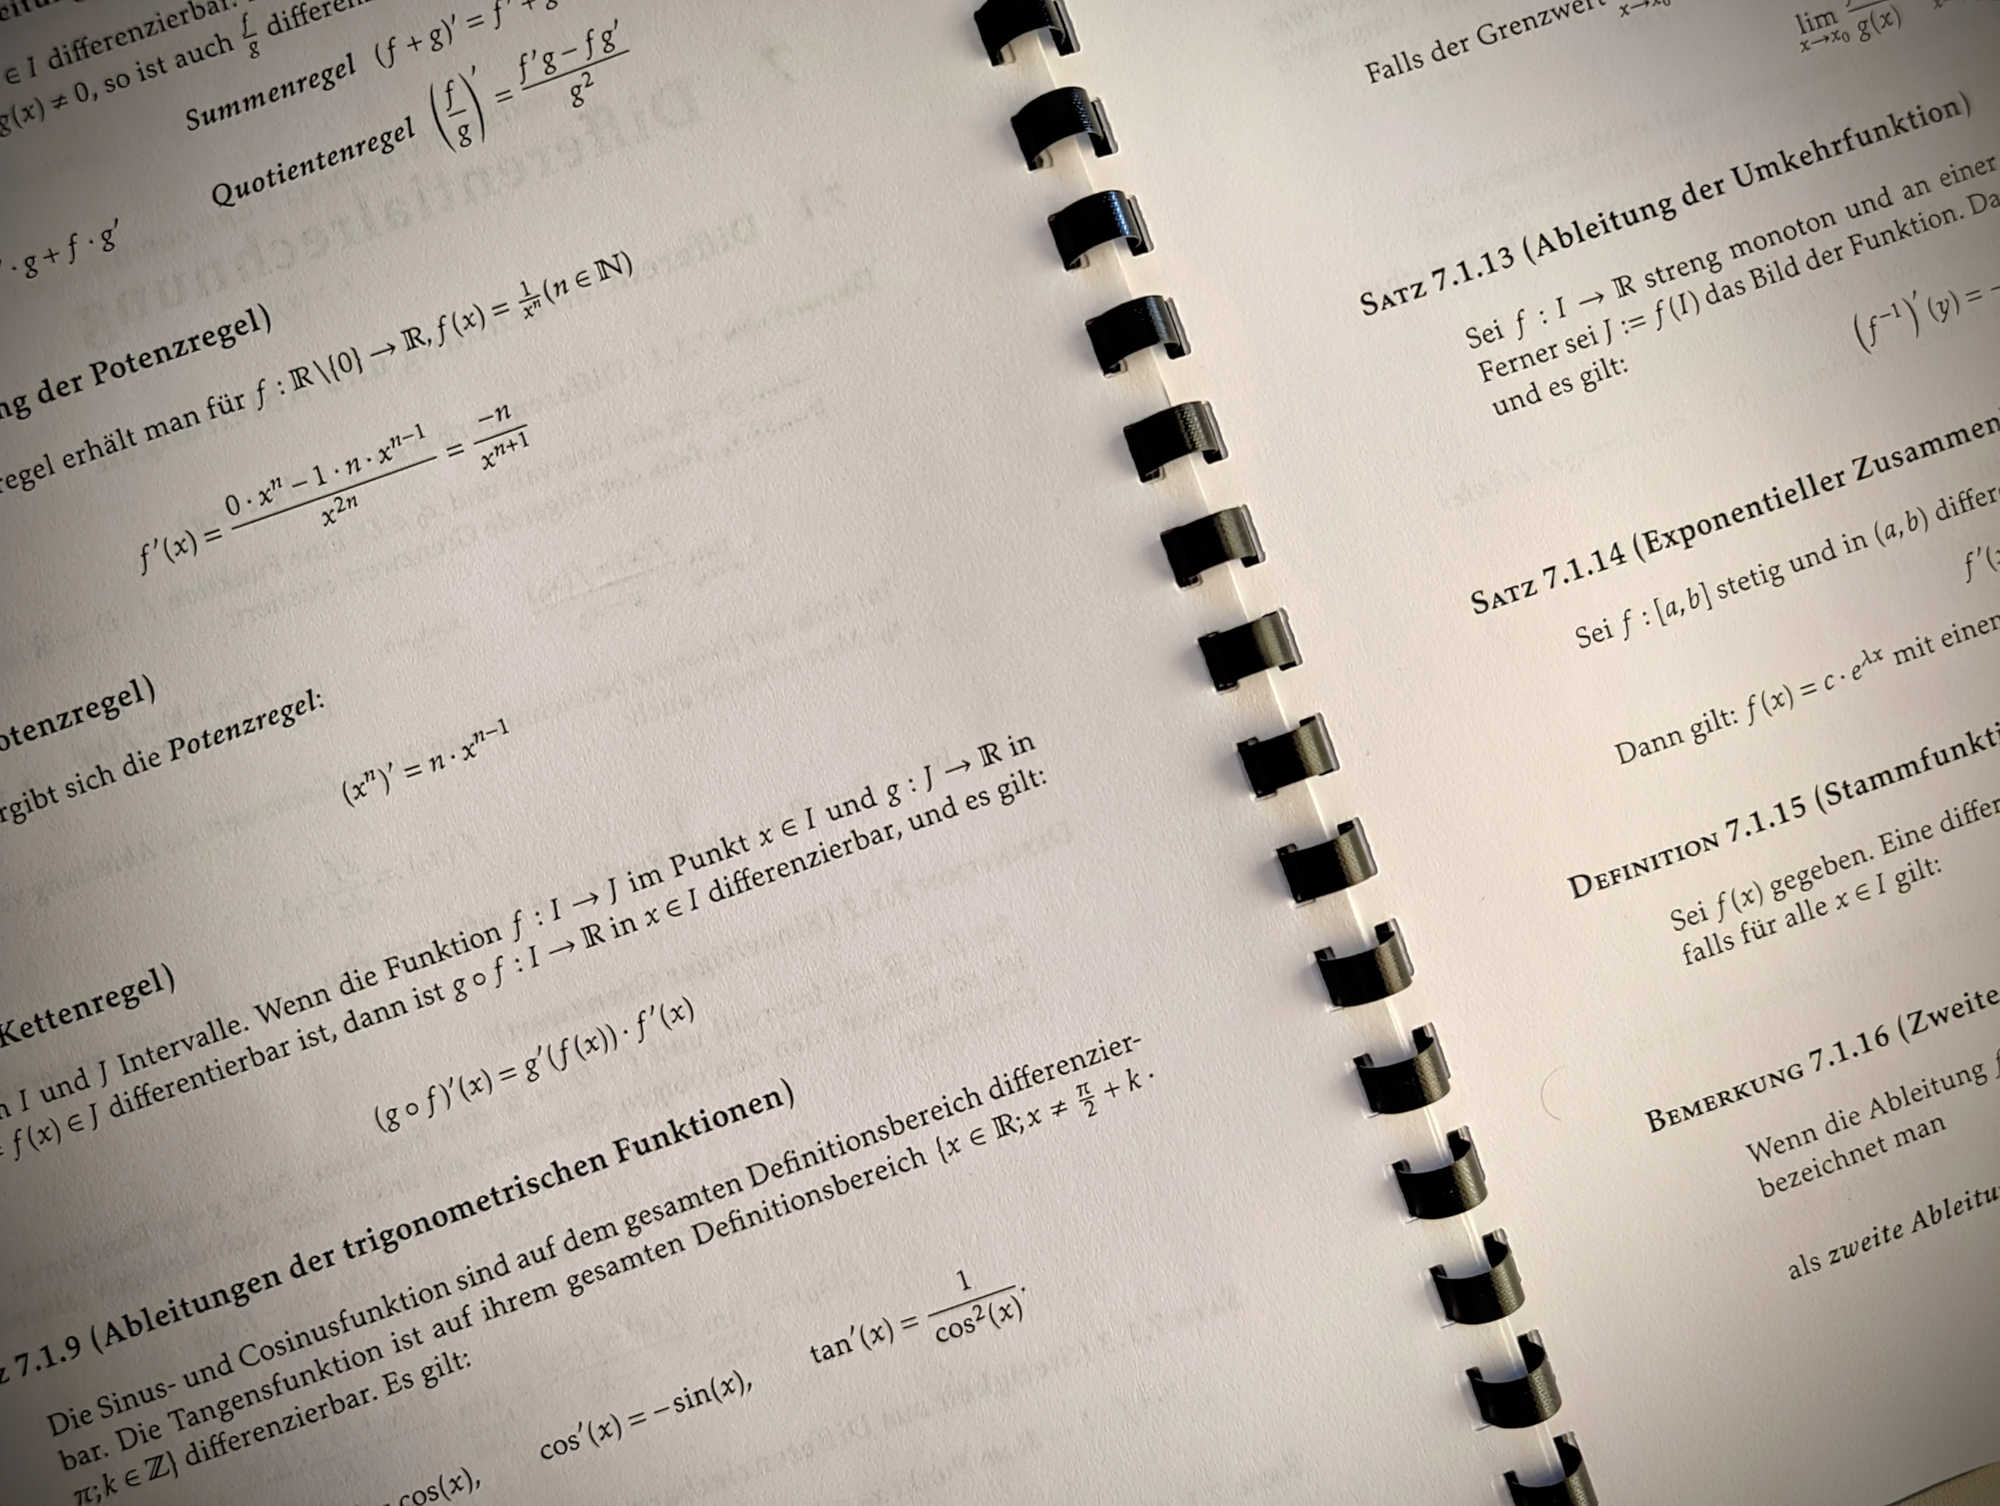 ∈ I differenzierbar.
g(x) ≠ 0, so ist auch f/g
Summenregel (f + g)′ = f′ + g
Quotientenregel (f/g)′ = (f′g − f g′)/g²
· g + f · g′
der Potenzregel)
regel erhält man für f : ℝ\{0} → ℝ, f(x) = 1/xⁿ (n ∈ ℕ)
f′(x) = (0 · xⁿ − 1 · n · xⁿ⁻¹)/x²ⁿ = −n/xⁿ⁺¹
otenzregel)
rgibt sich die Potenzregel:
(xⁿ)′ = n · xⁿ⁻¹
Kettenregel)
I und J Intervalle. Wenn die Funktion f : I → J im Punkt x ∈ I und g : J → ℝ in
f(x) ∈ J differentierbar ist, dann ist g ∘ f : I → ℝ in x ∈ I differenzierbar, und es gilt:
(g ∘ f)′(x) = g′(f(x)) · f′(x)
z 7.1.9 (Ableitungen der trigonometrischen Funktionen)
Die Sinus- und Cosinusfunktion sind auf dem gesamten Definitionsbereich differenzier-
bar. Die Tangensfunktion ist auf ihrem gesamten Definitionsbereich {x ∈ ℝ; x ≠ π/2 + k ·
π; k ∈ ℤ} differenzierbar. Es gilt:
cos(x), cos′(x) = −sin(x), tan′(x) = 1/cos²(x).
Falls der Grenzwert x→x₀ lim x→x₀ g(x)
Satz 7.1.13 (Ableitung der Umkehrfunktion)
Sei f : I → ℝ streng monoton und an einer
Ferner sei J := f(I) das Bild der Funktion. Da
und es gilt:
(f⁻¹)′(y) =
Satz 7.1.14 (Exponentieller Zusammen
Sei f : [a, b] stetig und in (a, b) differ
f′(
Dann gilt: f(x) = c · e^λx mit einer
Definition 7.1.15 (Stammfunkti
Sei f(x) gegeben. Eine differ
falls für alle x ∈ I gilt:
Bemerkung 7.1.16 (Zweite
Wenn die Ableitung f
bezeichnet man
als zweite Ableitu